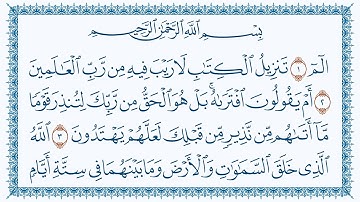 بِسْمِ اللَّهِ الرَّحْمَٰنِ الرَّحِيمِ
الٓمٓ ١ تَنزِيلُ الْكِتَٰبِ لَا رَيْبَ فِيهِ مِن رَّبِّ الْعَٰلَمِينَ
٢ أَمْ يَقُولُونَ افْتَرَىٰهُ ۚ بَلْ هُوَ الْحَقُّ مِن رَّبِّكَ لِتُنذِرَ قَوْمًا
مَّآ أَتَىٰهُم مِّن نَّذِيرٍ مِّن قَبْلِكَ لَعَلَّهُمْ يَهْتَدُونَ ٣ اللَّهُ
الَّذِي خَلَقَ السَّمَٰوَٰتِ وَالْأَرْضَ وَمَا بَيْنَهُمَا فِي سِتَّةِ أَيَّامٍ